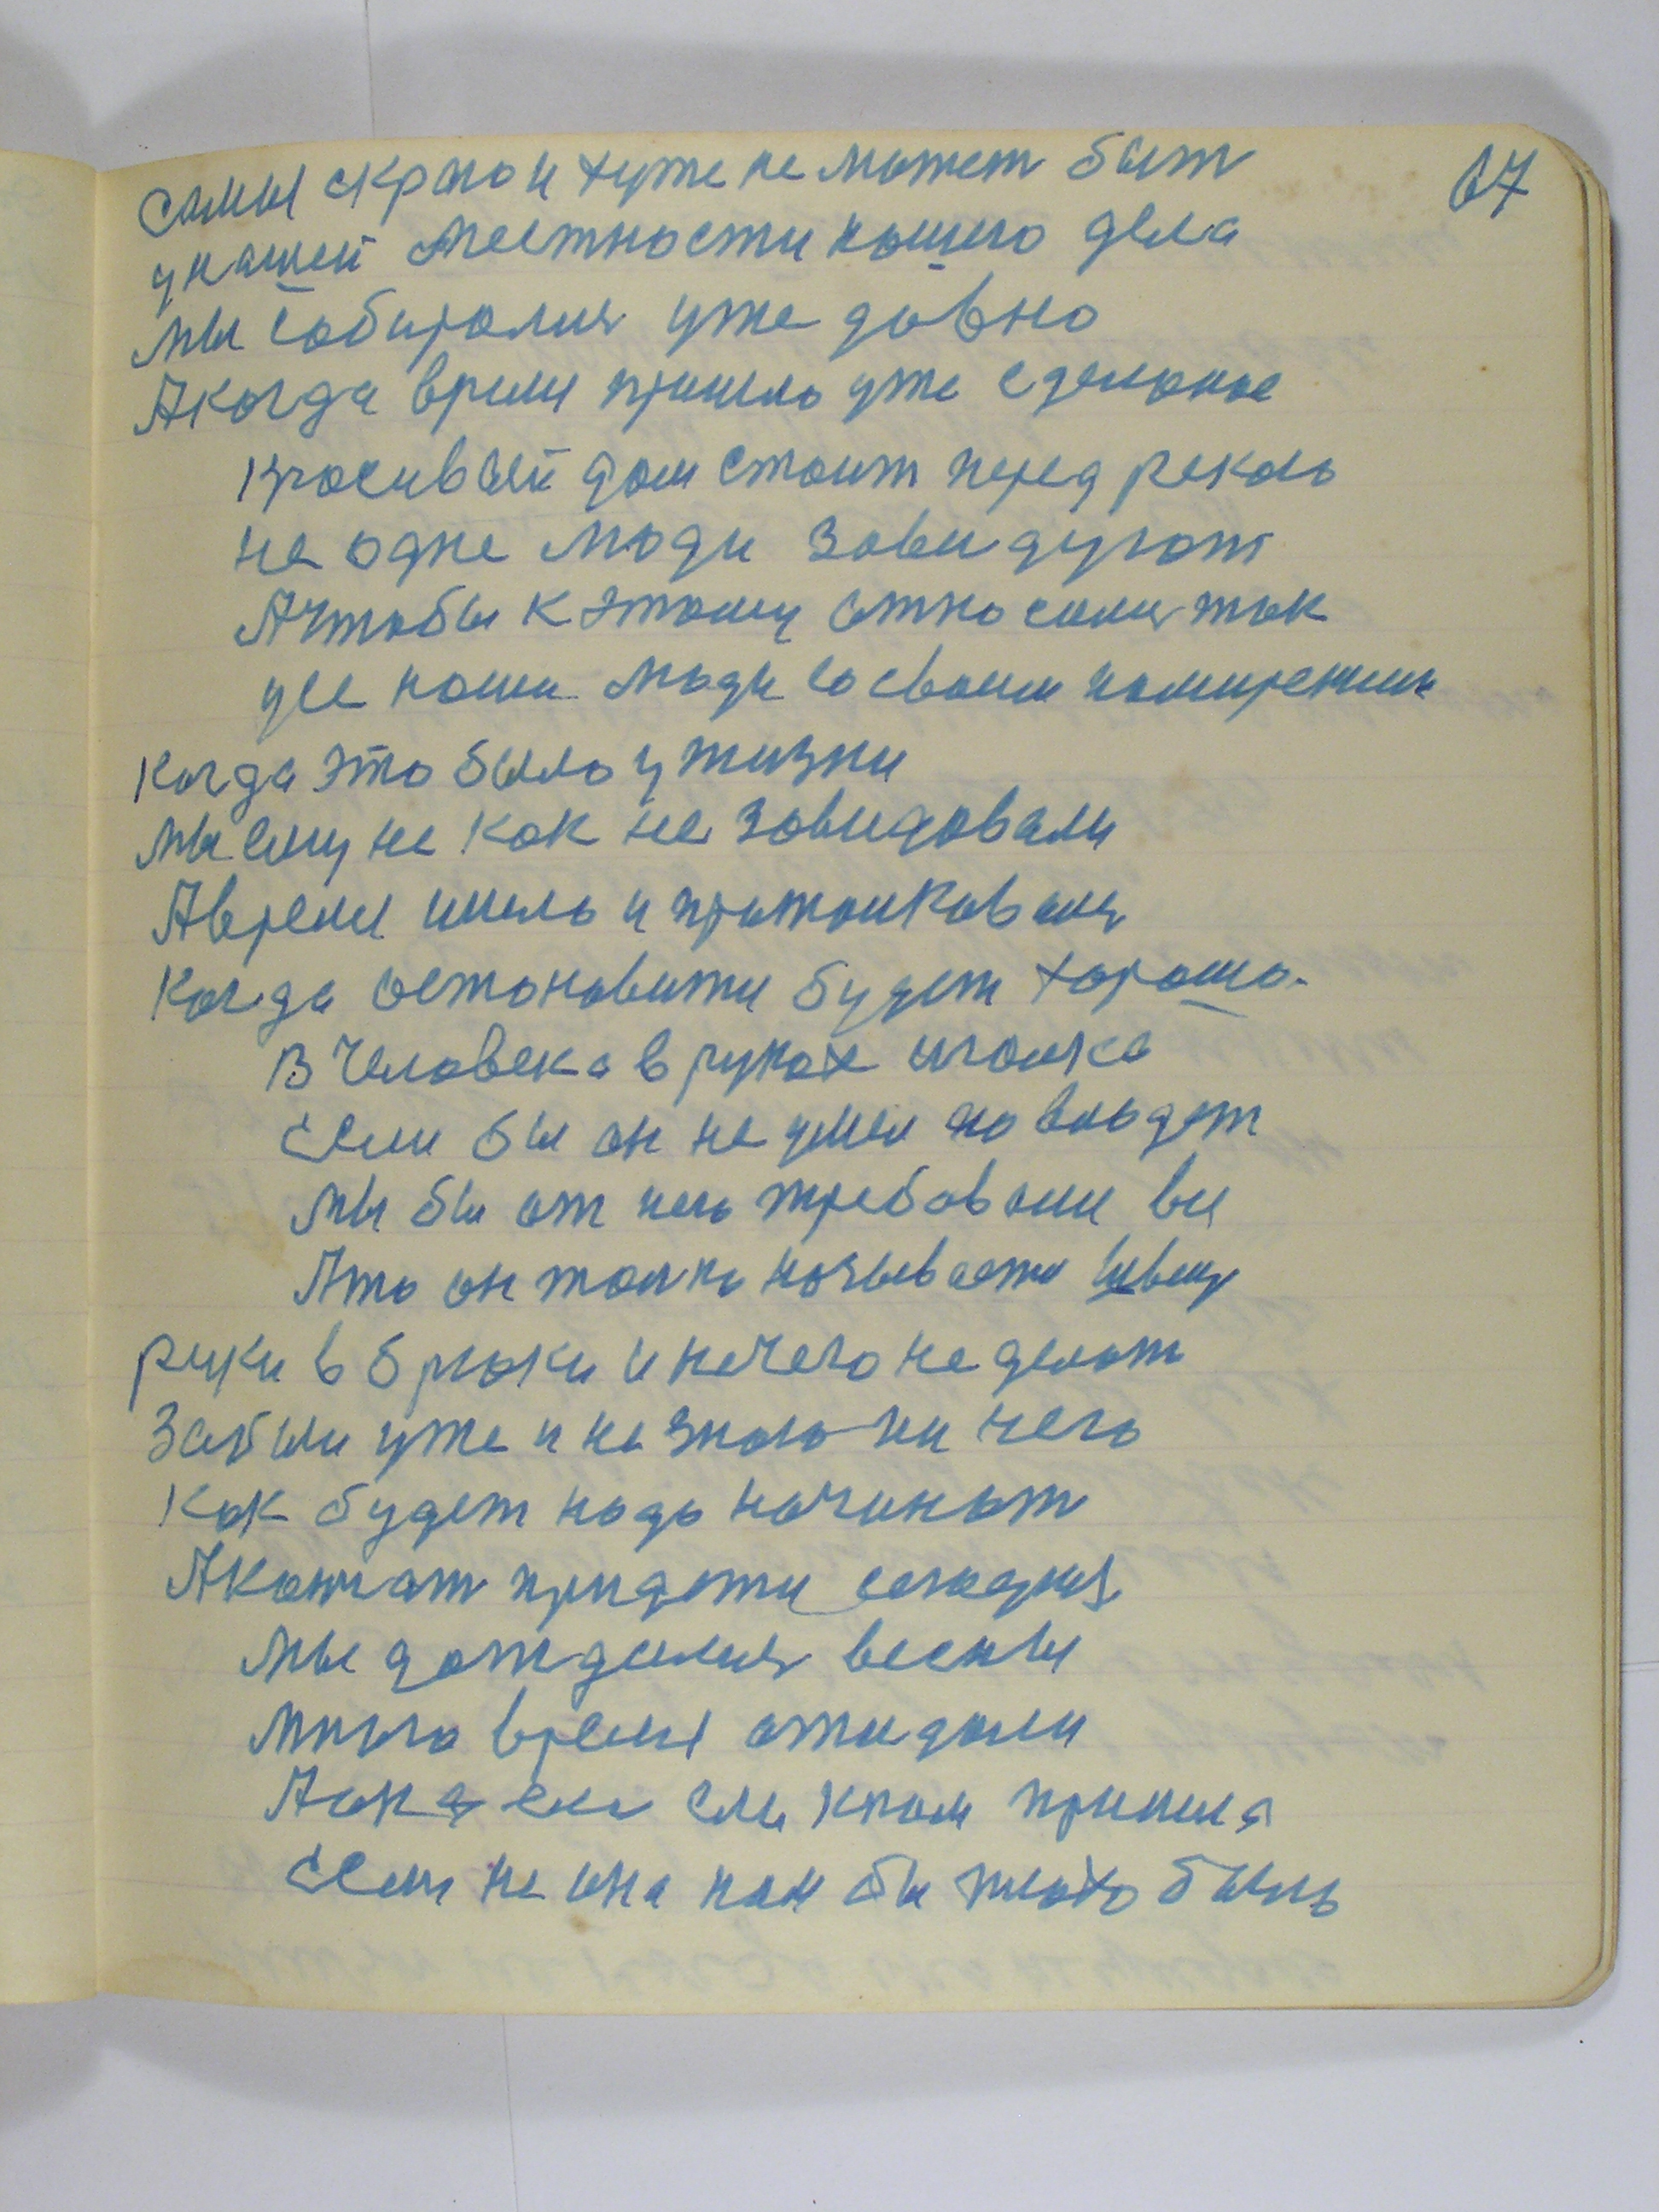 67
самы скрмо и хуже не может быт
у нашей местности нашего дела
мы собиралия уже давно
А когда время пришло уже сделаное
красивый дом стоит перед рекаю
не одне люди завидуют
А чтобы к этому относилия так
усе наши люди со своим намирением
когда это было у жизни
мы ему не как не завидовали
А время ишло и
когда остоновити будет хорошо.
В человека в руках иголка
если бы он не умел
мы бы от него требовали
А то он называети швец
руки в брюки и нечего не делат
Забыли уже и не знаю ни чего
как будет надо начинат
А кончат придети сегодня
мы дождалия весны
много время ожидали
А она к нам пришла
если не она нам бы плохо было